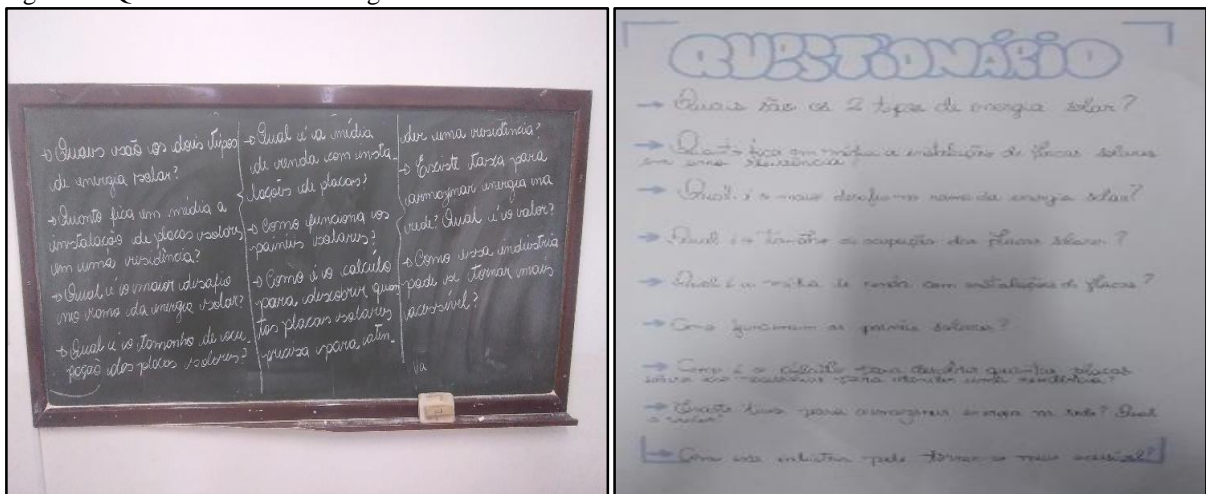 → Quais são os dois tipos
de energia solar?
→ Quanto fica em média a
instalação de placas solares
em uma residência?
→ Qual é o maior desafio
no ramo da energia solar?
→ Qual é o tamanho de ocu-
pação das placas solares?
→ Qual é a média
de renda com insta-
lações de placas?
→ Como funciona os
painéis solares?
→ Como é o calculo
para descobrir quan-
tas placas solares
precisa para aten-
der uma residência?
→ Existe taxa para
armazenar energia na
rede? Qual é o valor?
→ Como essa indústria
pode se tornar mais
acessível?
QUESTIONÁRIO
→ Quais são os 2 tipos de energia solar?
→ Quanto fica em média a instalação de placas solares
em uma residência
→ Qual é o maior desafio no ramo da energia solar?
→ Qual é o tamanho de ocupação das placas solares?
→ Qual é a média de renda com instalações de placas?
→ Como funcionam os painéis solares?
→ Como é o cálculo para descobrir quantas placas
para atender uma residência?
→ Existe taxa para armazenar energia na rede? Qual
o valor?
→ Como essa indústria pode tornar se mais acessível?